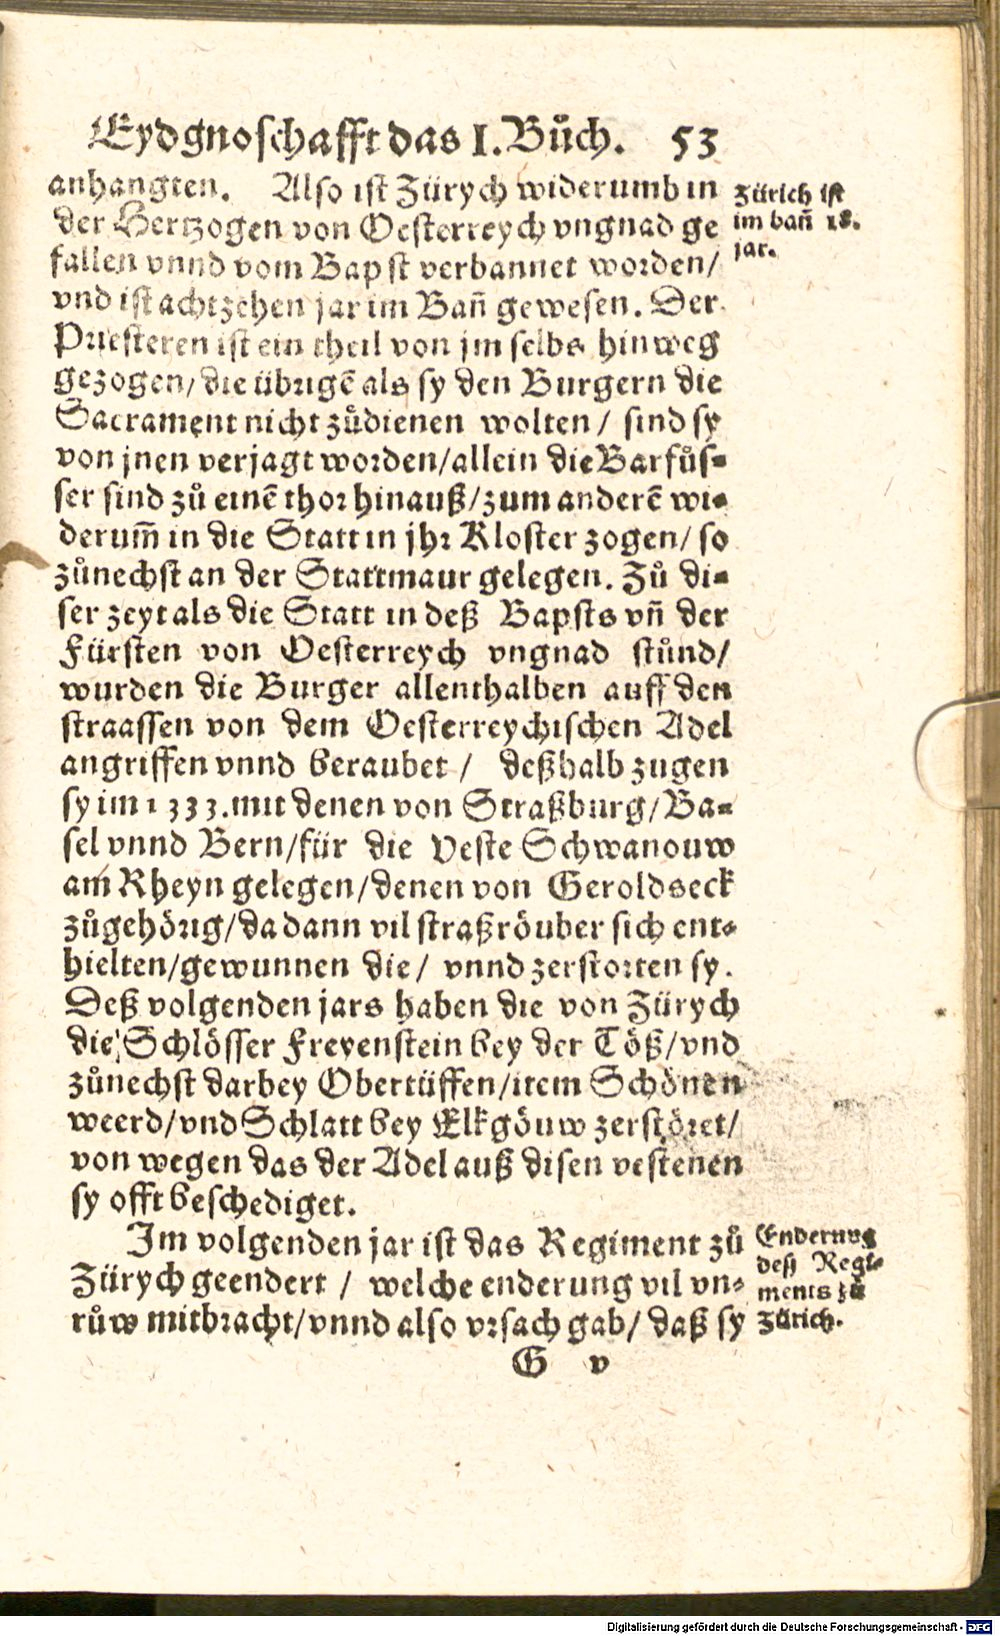 Eydgnoschafft das I. Bůch. 53
anhangten. Also ist Zürych widerumb in
der Hertzogen von Oesterreych vngnad ge
fallen vnnd vom Bapst verbannet worden/
vnd ist achtzehen jar im Bañ gewesen. Der
Priesteren ist ein theil von jm selbs hinweg
gezogen/ die übrigē als sy den Burgern die
Sacrament nicht zůdienen wolten/ sind sy
von jnen verjagt worden/ allein die Barfůs-
ser sind zů einē thor hinauß/ zum anderē wi-
derum̄ in die Statt in jhr Kloster zogen/ so
zůnechst an der Stattmaur gelegen. Zů di-
ser zeyt als die Statt in deß Bapsts vñ der
Fürsten von Oesterreych vngnad stůnd/
wurden die Burger allenthalben auff den
straassen von dem Oesterreychischen Adel
angriffen vnnd beraubet/ deßhalb zugen
sy im 1333. mit denen von Straßburg/ Ba-
sel vnnd Bern/ für die Veste Schwanouw
am Rheyn gelegen/ denen von Geroldseck
zůgehörig/ da dann vil straßröuber sich ent-
hielten/ gewunnen die/ vnnd zerstorten sy.
Deß volgenden jars haben die von Zürych
die Schlösser Freyenstein bey der Töß/ vnd
zůnechst darbey Obertüffen/ item Schönen
weerd/ vnd Schlatt bey Elkgöuw zerstöret/
von wegen das der Adel auß disen vestenen
sy offt beschediget.
Im volgenden jar ist das Regiment zů
Zürych geendert/ welche enderung vil vn-
růw mitbracht/ vnnd also vrsach gab/ daß sy
G v
Zürich ist
im bañ 18.
jar.
Enderung
deß Regi-
ments zů
Zürich.
Digitalisierung gefördert durch die Deutsche Forschungsgemeinschaft - DFG